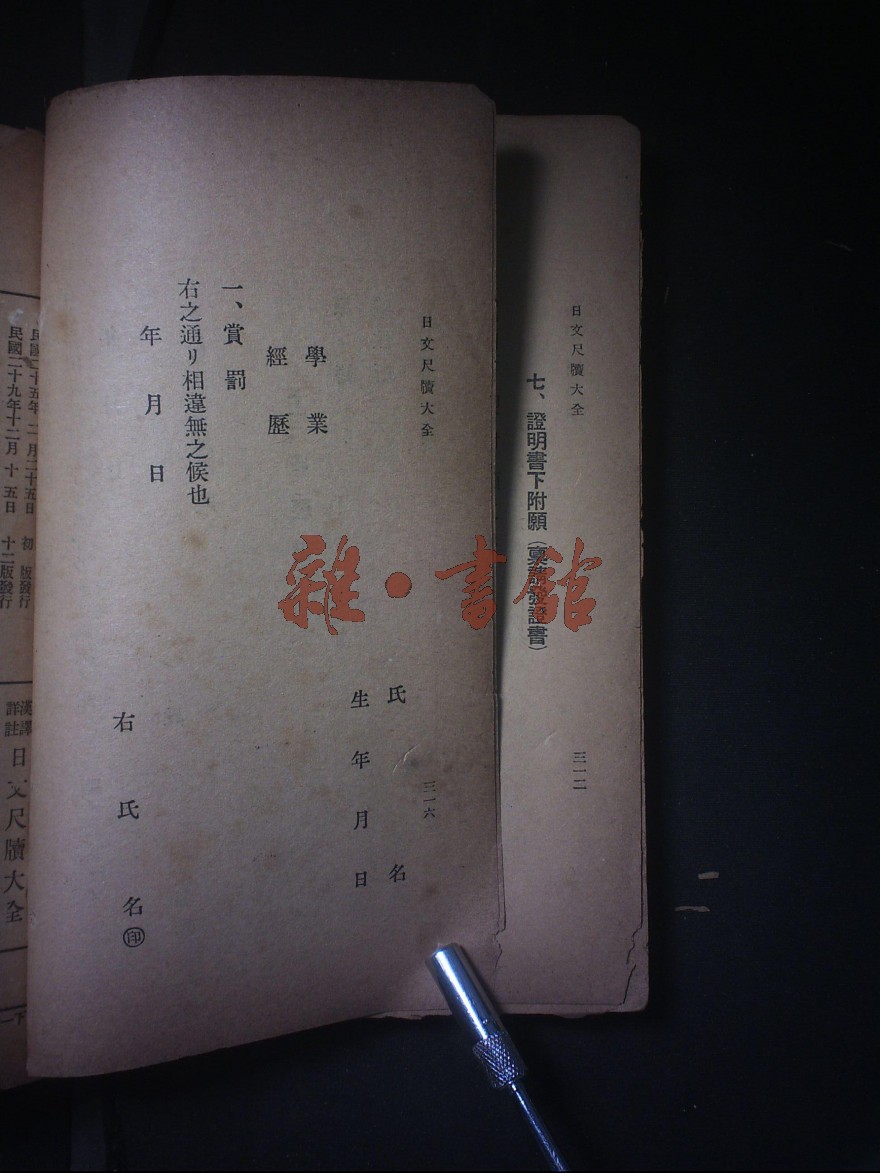 日文尺牘大全
三一二
七、證明書下附願(稟請發證書)
日文尺牘大全
三一六
氏名
生年月日
學業
經歷
一、賞罰
右之通リ相違無之候也
年月日
右氏名㊞
民國二十五年二月二十五日 初版發行
民國二十九年十二月十五日 十二版發行
漢譯詳註 日文尺牘大全
雜·書館